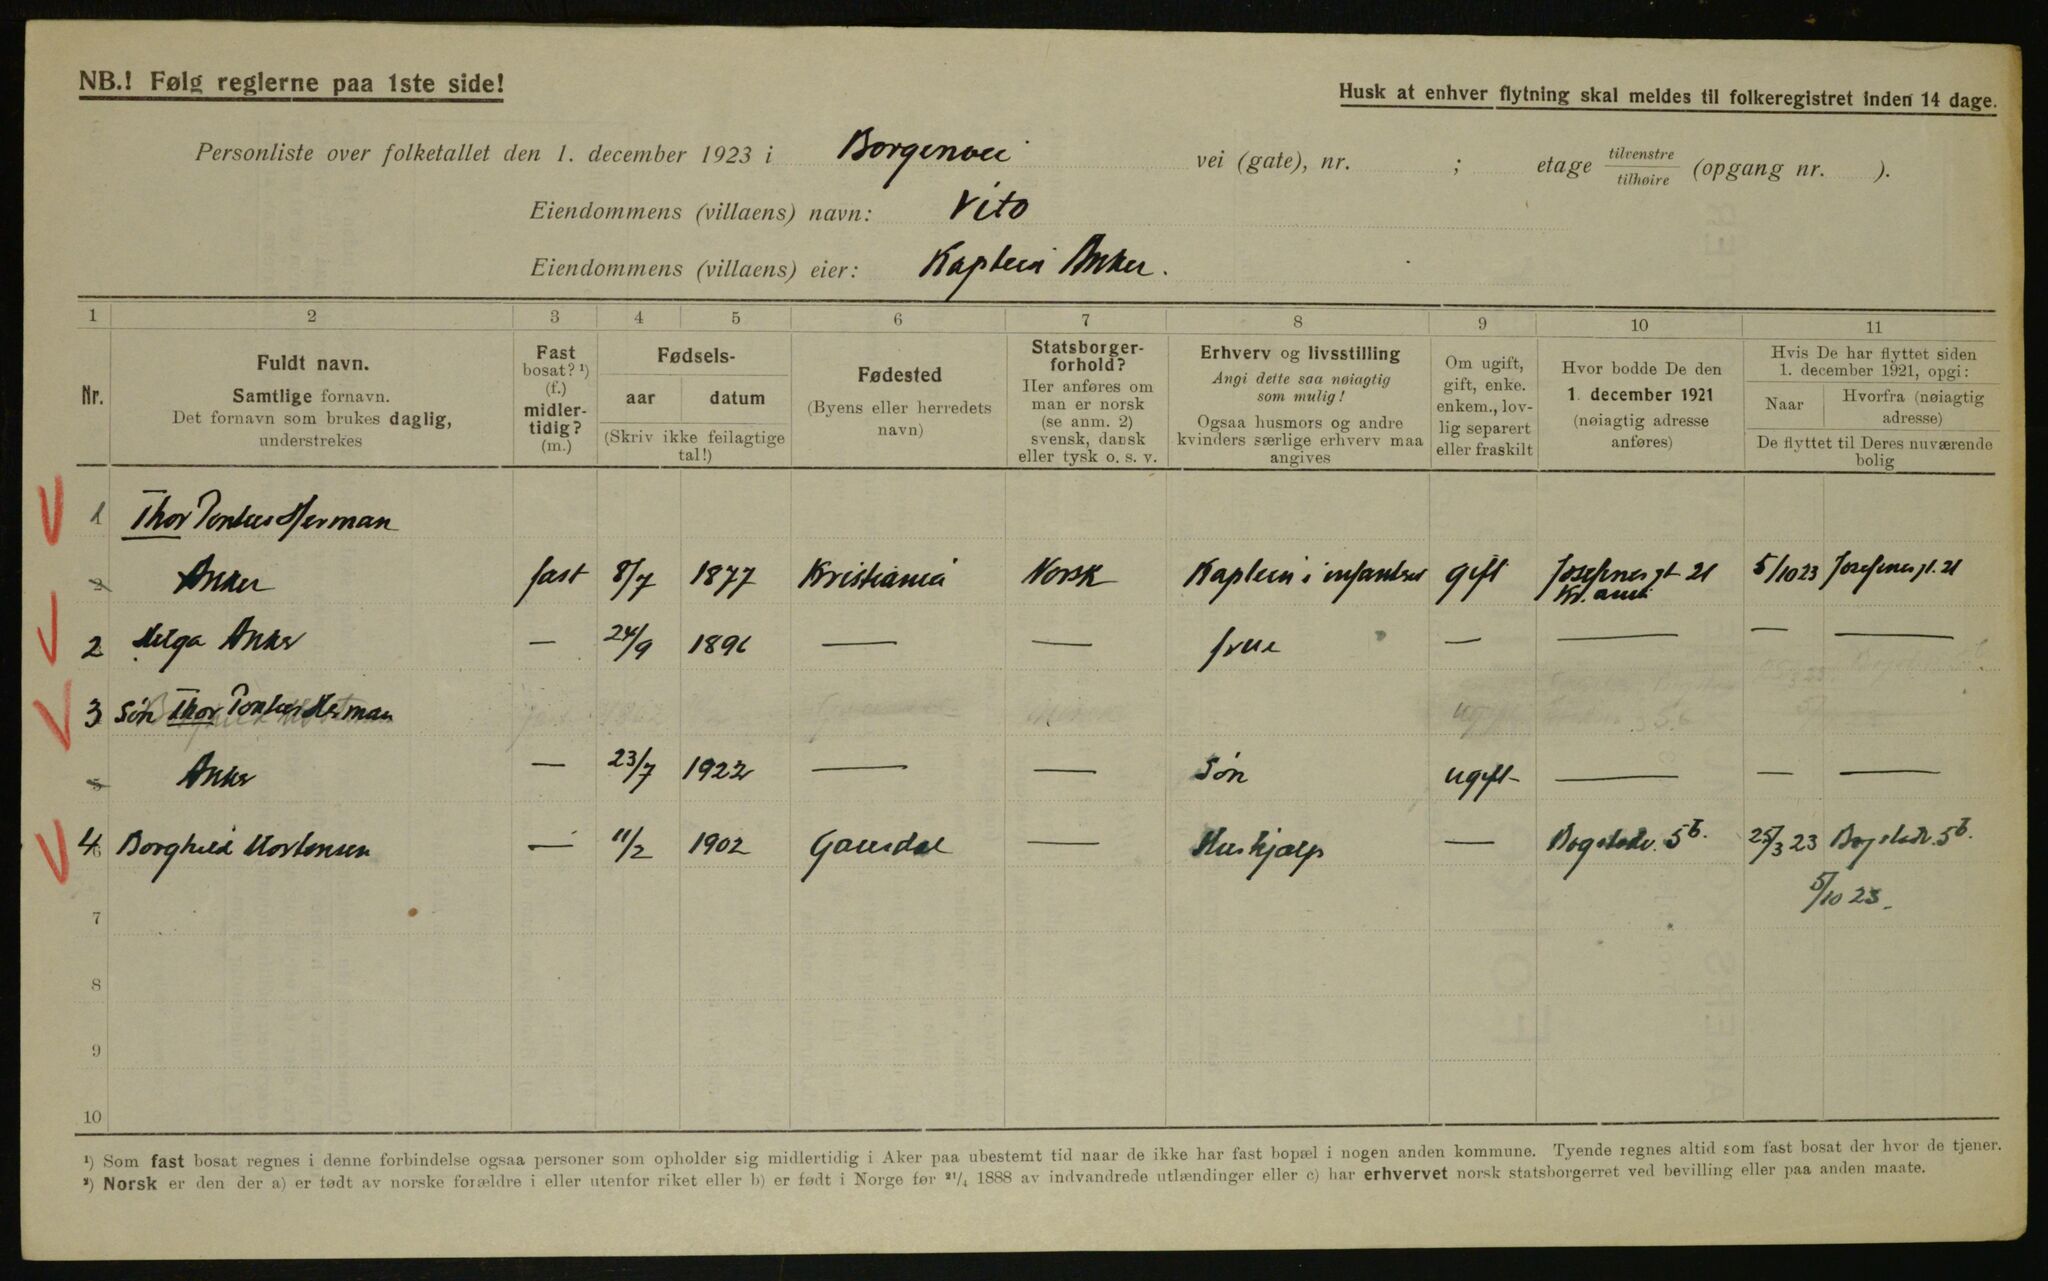 NB.! Følg reglerne paa 1ste side!
Husk at enhver flytning skal meldes til folkeregistret inden 14 dage.
Personliste over folketallet den 1. december 1923 i Borgenvei vei (gate), nr. ; etage tilvenstre/tilhøire (opgang nr. ).
Eiendommens (villaens) navn: Vito
Eiendommens (villaens) eier: Kaptein Anker.
1 2 3 4 5 6 7 8 9 10 11
Nr.
Fuldt navn.
Samtlige fornavn.
Det fornavn som brukes daglig,
understrekes
Fast
bosat? ¹)
(f.)
midler-
tidig?
(m.)
Fødsels-
aar datum
(Skriv ikke feilagtige
tal!)
Fødested
(Byens eller herredets
navn)
Statsborger-
forhold?
Her anføres om
man er norsk
(se anm. 2)
svensk, dansk
eller tysk o. s. v.
Erhverv og livsstilling
Angi dette saa nøiagtig
som mulig!
Ogsaa husmors og andre
kvinders særlige erhverv maa
angives
Om ugift,
gift, enke.
enkem., lov-
lig separert
eller fraskilt
Hvor bodde De den
1. december 1921
(nøiagtig adresse
anføres)
Hvis De har flyttet siden
1. december 1921, opgi:
Naar
Hvorfra (nøiagtig
adresse)
De flyttet til Deres nuværende
bolig
1 Thor Pontus Herman
2 Anker fast 8/7 1877 Kristiania Norsk Kaptein i infanteriet gift Josefinesgt 21 5/10 23 Josefinesgt. 21
2 Helga Anker — 24/9 1896 — — frue — — — —
3 Søn Thor Pontus Herman
5 Anker — 23/7 1922 — — Søn ugift — — —
4 6 Borghild Mortensen — 11/2 1902 Gausdal — Hushjælp — Bogstadv. 5b. 25/3 23 Bogstadv. 5b.
7 5/10 23.
8
9
10
¹) Som fast bosat regnes i denne forbindelse ogsaa personer som opholder sig midlertidig i Aker paa ubestemt tid naar de ikke har fast bopæl i nogen anden kommune. Tyende regnes altid som fast bosat der hvor de tjener.
²) Norsk er den der a) er født av norske forældre i eller utenfor riket eller b) er født i Norge før 21/4 1888 av indvandrede utlændinger eller c) har erhvervet norsk statsborgerret ved bevilling eller paa anden maate.